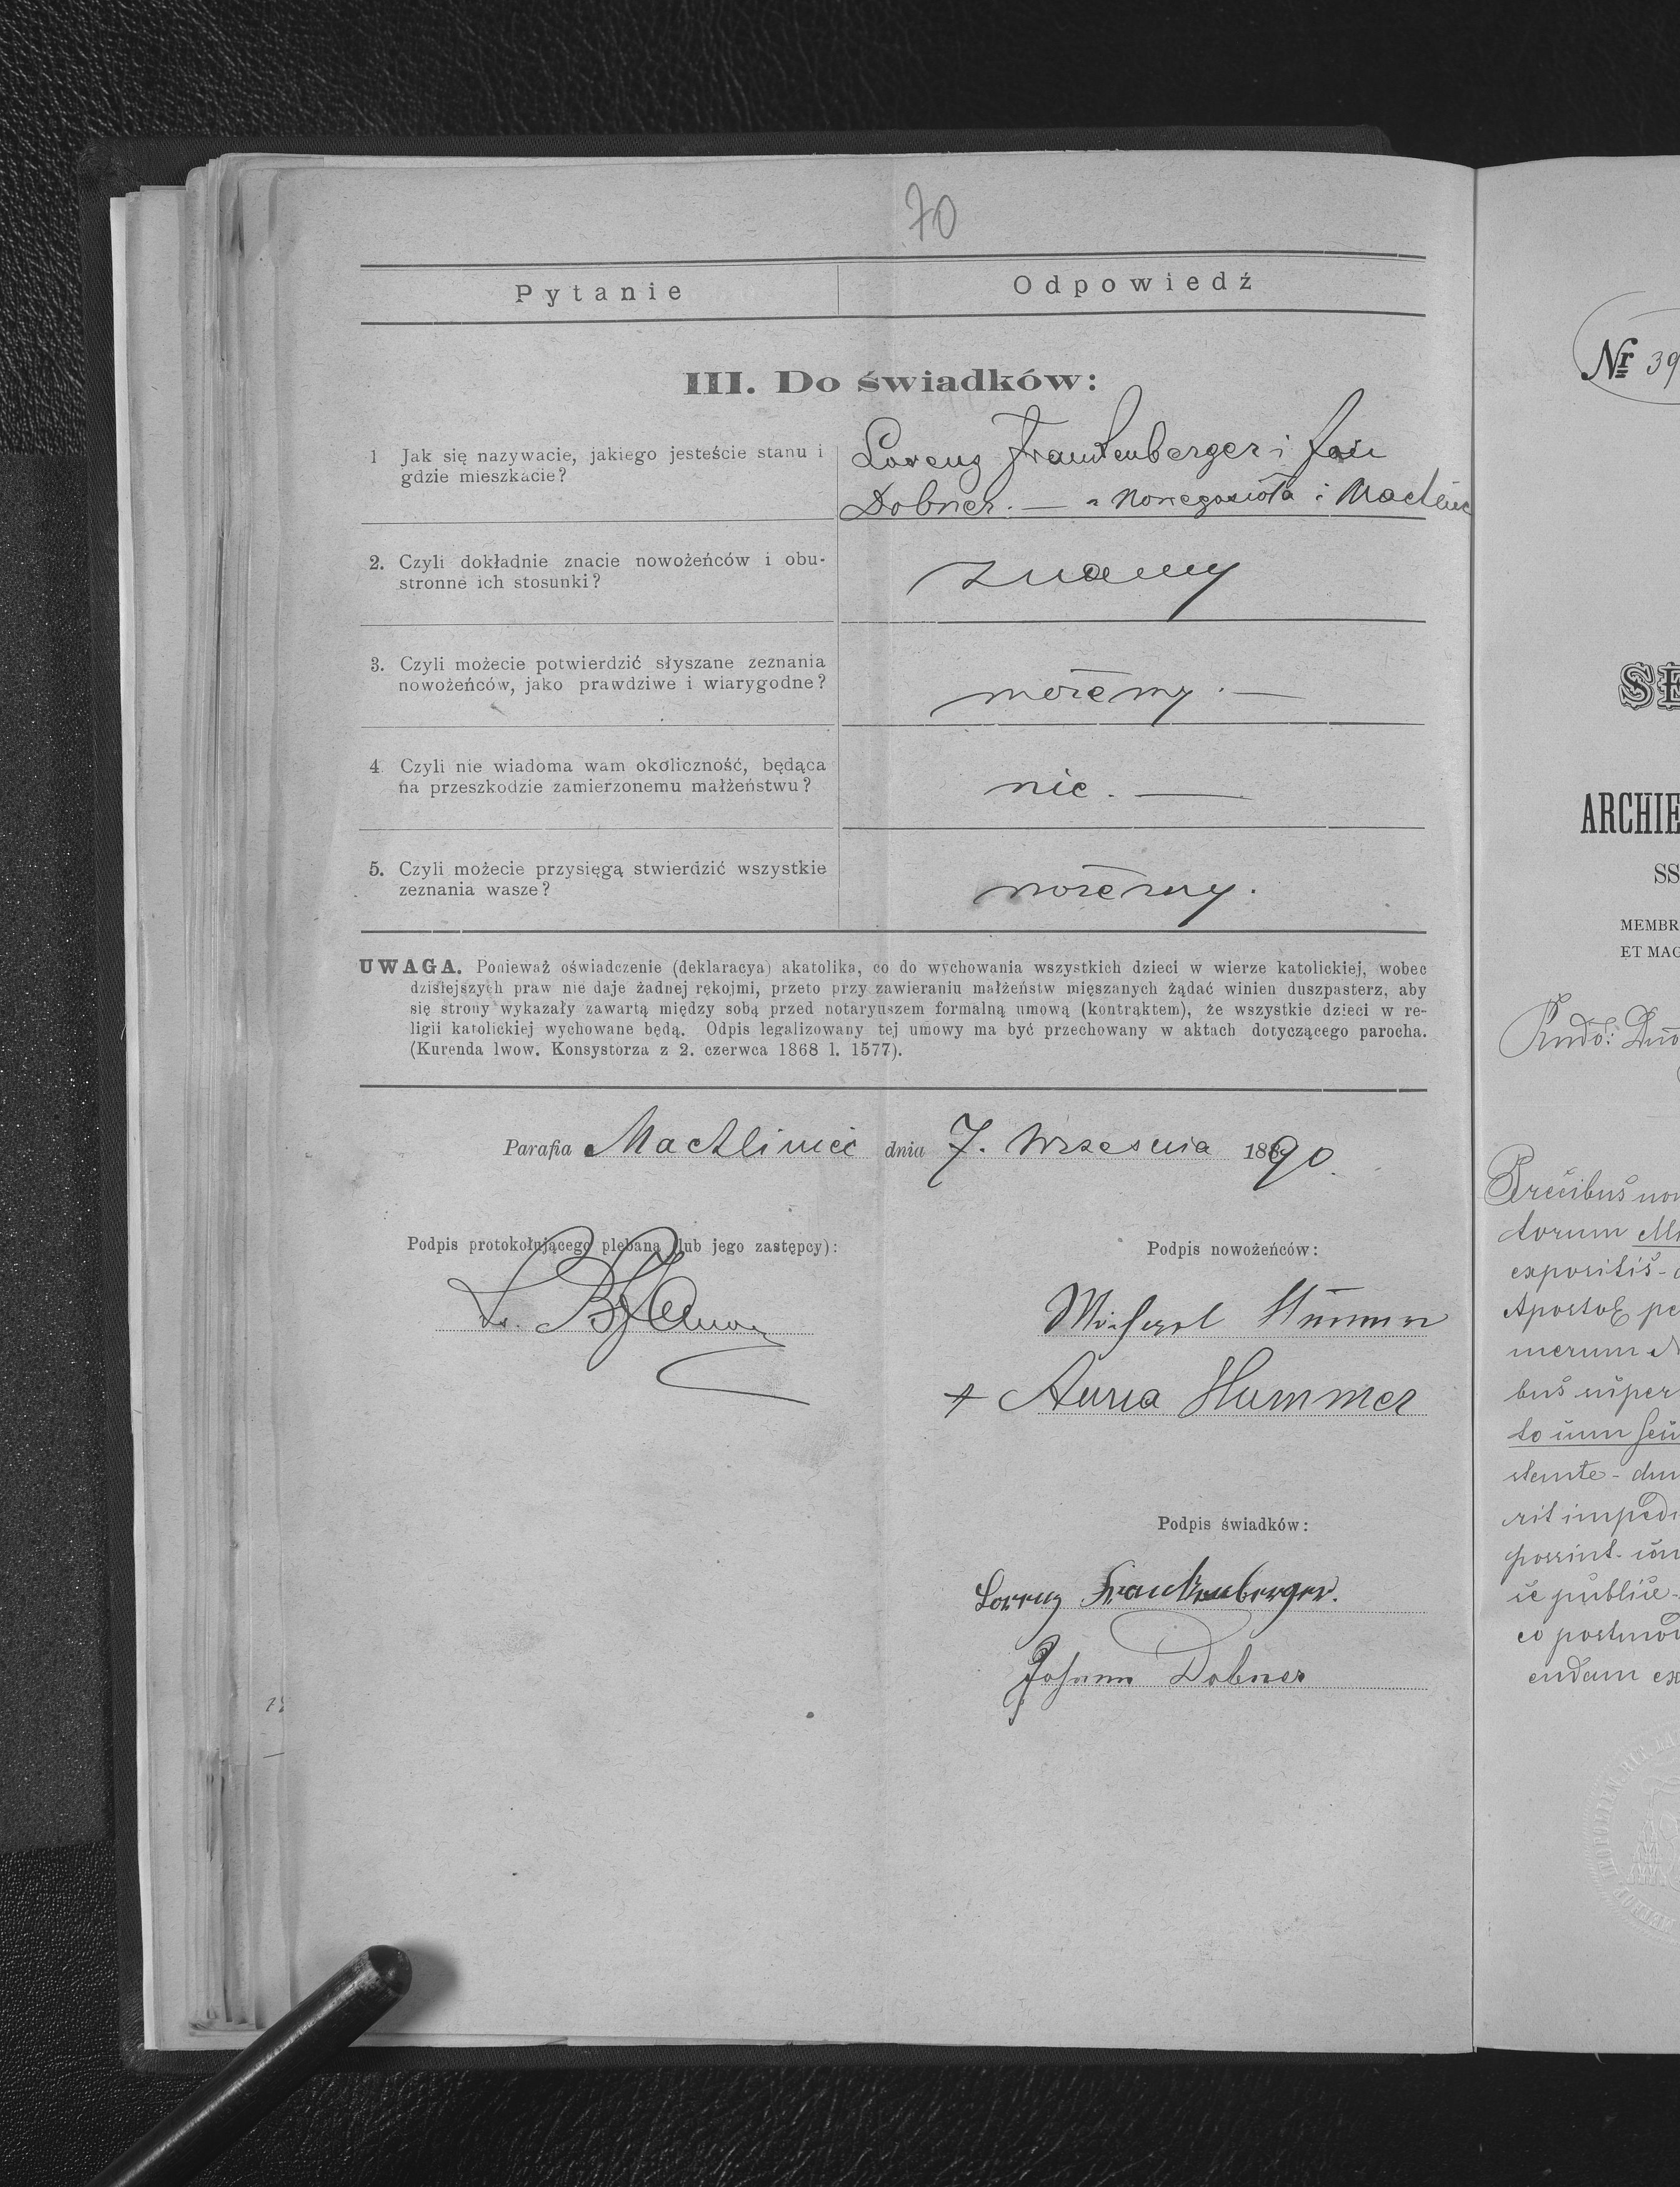 70
Pytanie
Odpowiedź
III. Do świadków:
1 Jak się nazywacie, jakiego jesteście stanu i
gdzie mieszkacie?
Lorenz Frankenberger i Jan
Dobner. — z Nowegosioła i Machliniec
2. Czyli dokładnie znacie nowożeńców i obu-
stronne ich stosunki?
znamy
3. Czyli możecie potwierdzić słyszane zeznania
nowożeńców, jako prawdziwe i wiarygodne?
możemy. —
4. Czyli nie wiadoma wam okoliczność, będąca
na przeszkodzie zamierzonemu małżeństwu?
nie. —
5. Czyli możecie przysięgą stwierdzić wszystkie
zeznania wasze?
możemy.
UWAGA. Ponieważ oświadczenie (deklaracya) akatolika, co do wychowania wszystkich dzieci w wierze katolickiej, wobec
dzisiejszych praw nie daje żadnej rękojmi, przeto przy zawieraniu małżeństw mięszanych żądać winien duszpasterz, aby
się strony wykazały zawartą między sobą przed notaryuszem formalną umową (kontraktem), że wszystkie dzieci w re-
ligii katolickiej wychowane będą. Odpis legalizowany tej umowy ma być przechowany w aktach dotyczącego parocha.
(Kurenda lwow. Konsystorza z 2. czerwca 1868 l. 1577).
Parafia Machliniec dnia 7. Września 1890.
Podpis protokołującego plebana (lub jego zastępcy):
Podpis nowożeńców:
Michael Hümmer
+ Anna Hummer
Podpis świadków:
Lorenz Frankenberger.
Johann Dobner
Nr 39
SE
ARCHIE
SS
MEMBR
ET MAG
Precibus
torum
expositis
Apostol
merum
bus super
to
stante
rit impedi
possint
publice
eo postmod
endam ex